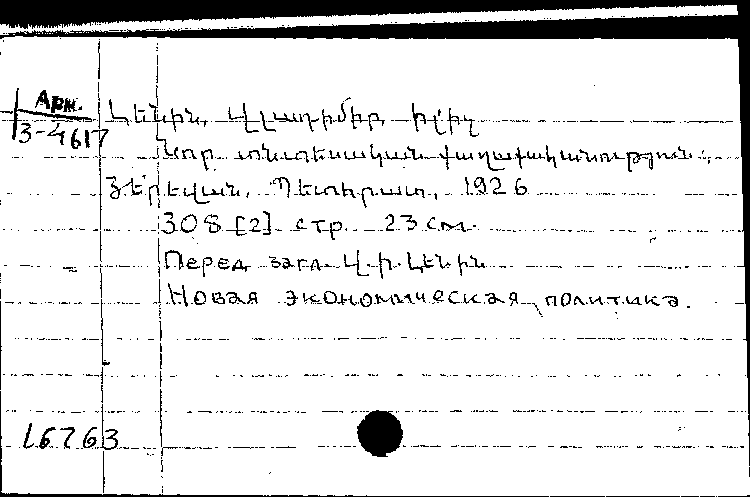 Арм.
3-4617
Լենին, Վլադիմիր, Իլիչ
Նոր տնտեսական քաղաքականություն.
Յերեվան, Պետհրատ, 1926
308 [2] стр. 23 см.
Перед загл. Վ.Ի. Լենին
Новая экономическая политика.
16763